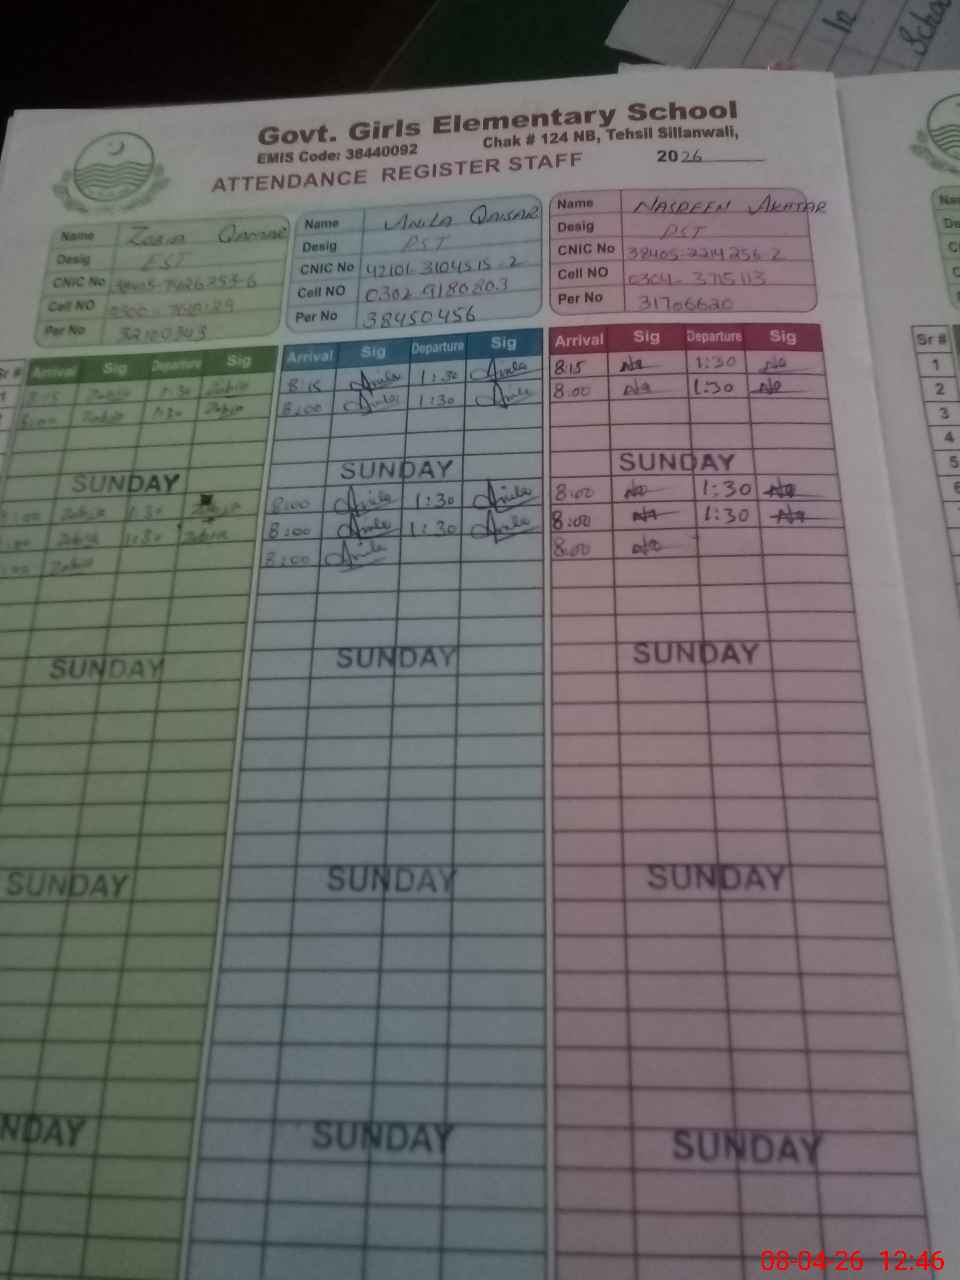 Govt. Girls Elementary School
EMIS Code: 38440092 Chak # 124 NB, Tehsil Sillanwali,
ATTENDANCE REGISTER STAFF 2026
Name Zobia Qamar
Desig EST
CNIC No
Cell NO
Per No
Name Anila Qaisar
Desig PST
CNIC No 42101-3104515-2
Cell NO 0302 9180803
Per No 38450456
Name NASREEN AKHTAR
Desig PST
CNIC No 38405-2214256-2
Cell NO 0304-3715113
Per No 31706620
Sr # Arrival Sig Departure Sig Arrival Sig Departure Sig Arrival Sig Departure Sig Sr #
8:15 Zobia 1:30 Zobia 8:15 Anila 1:30 Anila 8:15 Na 1:30 Na 1
8:00 Zobia 1:30 Zobia 8:00 Anila 1:30 Anila 8:00 Na 1:30 Na 2
3
4
SUNDAY SUNDAY SUNDAY 5
8:00 Zobia 1:30 Zobia 8:00 Anila 1:30 Anila 8:00 Na 1:30 Na 6
8:00 Zobia 1:30 Zobia 8:00 Anila 1:30 Anila 8:00 Na 1:30 Na
8:00 Zobia 8:00 Anila 8:00 Na
SUNDAY SUNDAY SUNDAY
SUNDAY SUNDAY SUNDAY
NDAY SUNDAY SUNDAY
08-04-26 12:46